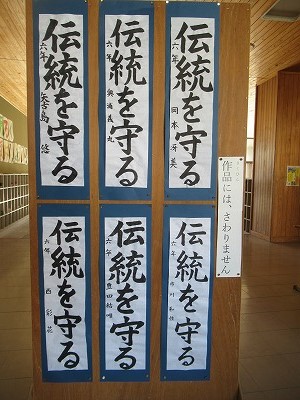 伝統を守る
六年 岡本 芽美
伝統を守る
六年
伝統を守る
六年 矢吉島 悠
作品には、さわりません
伝統を守る
六年 市川 和佳
伝統を守る
六年 豊田 結唯
伝統を守る
六年 西 彩花